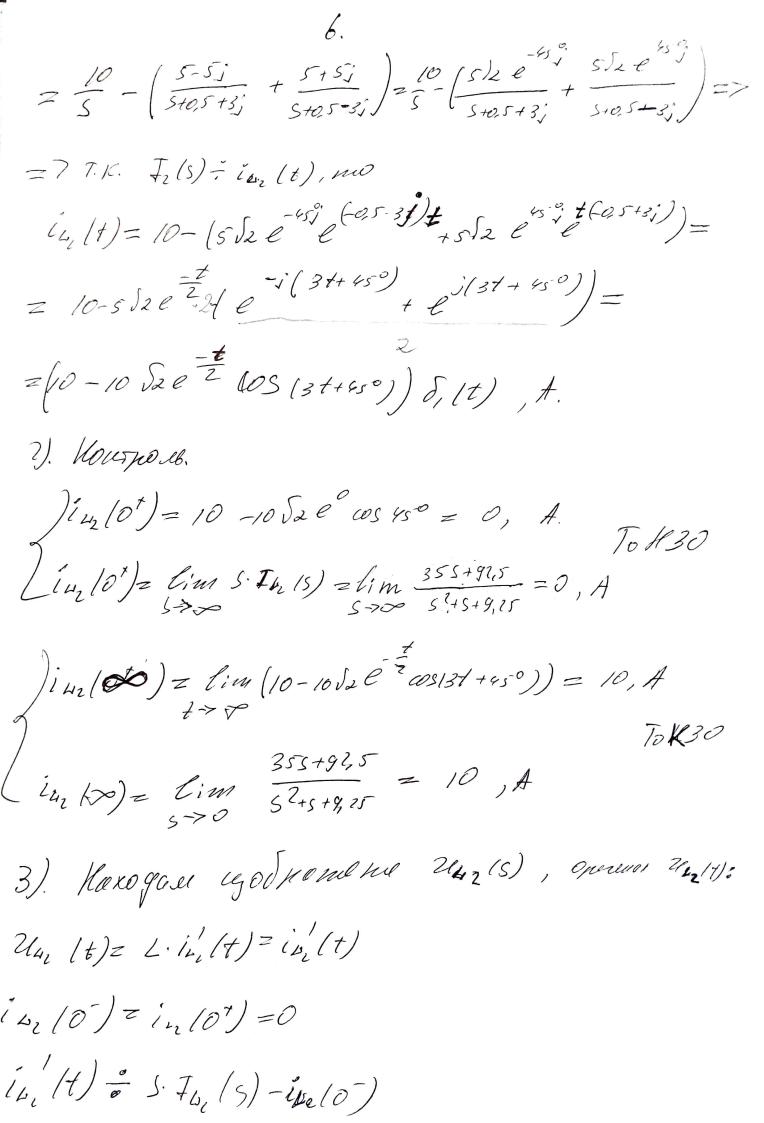 6.
= 10/s - ( (5-5j)/(s+0,5+3j) + (5+5j)/(s+0,5-3j) ) = 10/s - ( (5√2 e^{-45°j})/(s+0,5+3j) + (5√2 e^{45°j})/(s+0,5-3j) ) =>
=> т.к. I₂(s) ÷ i_{L2}(t), то
i_{L2}(t) = 10 - (5√2 e^{-45°j} e^{(-0,5-3j)t} + 5√2 e^{45°j} e^{t(-0,5+3j)}) =
= 10-5√2 e^{-t/2} · 2 ( (e^{-j(3t+45°)} + e^{j(3t+45°)})/2 ) =
= (10 - 10√2 e^{-t/2} cos(3t+45°)) δ₁(t) , А.
2). Контроль.
i_{L2}(0⁺) = 10 - 10√2 e⁰ cos 45° = 0, А.
ТоНЗО
i_{L2}(0⁺) = lim_{s→∞} s·I_{L2}(s) = lim_{s→∞} (35s+92,5)/(s²+s+9,25) = 0, А
i_{L2}(∞) = lim_{t→∞} (10-10√2 e^{-t/2} cos(3t+45°)) = 10, А
ТоКЗО
i_{L2}(∞) = lim_{s→0} (35s+92,5)/(s²+s+9,25) = 10, А
3). Находим изображение U_{L2}(s), оригинал U_{L2}(t):
U_{L2}(t) = L·i'_{L2}(t) = i'_{L2}(t)
i_{L2}(0⁻) = i_{L2}(0⁺) = 0
i'_{L2}(t) ÷ s·I_{L2}(s) - i_{L2}(0⁻)